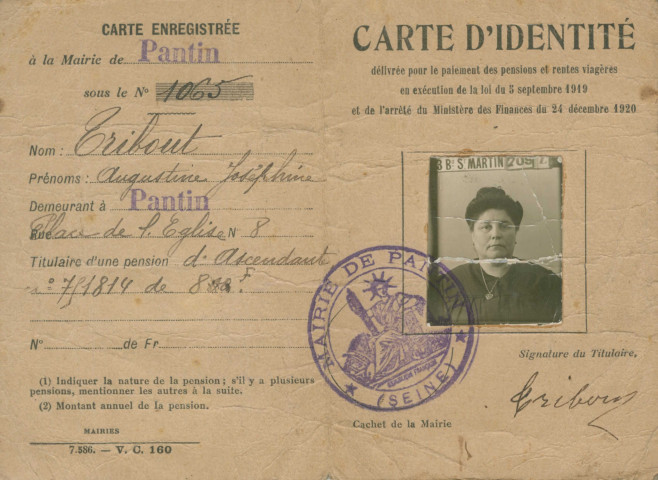 CARTE ENREGISTRÉE
à la Mairie de Pantin
sous le Nº 1065
Nom : Tribout
Prénoms : Augustine Joséphine
Demeurant à Pantin
Place de l'Eglise N 8
Titulaire d'une pension d'Ascendant
Nº de Fr
(1) Indiquer la nature de la pension ; s'il y a plusieurs
pensions, mentionner les autres à la suite.
(2) Montant annuel de la pension.
MAIRIES
7.586. — V. C. 160
CARTE D'IDENTITÉ
délivrée pour le paiement des pensions et rentes viagères
en exécution de la loi du 5 septembre 1919
et de l'arrêté du Ministère des Finances du 24 décembre 1920
3 Bd St MARTIN
MAIRIE DE PANTIN
(SEINE)
Signature du Titulaire,
Tribout
Cachet de la Mairie